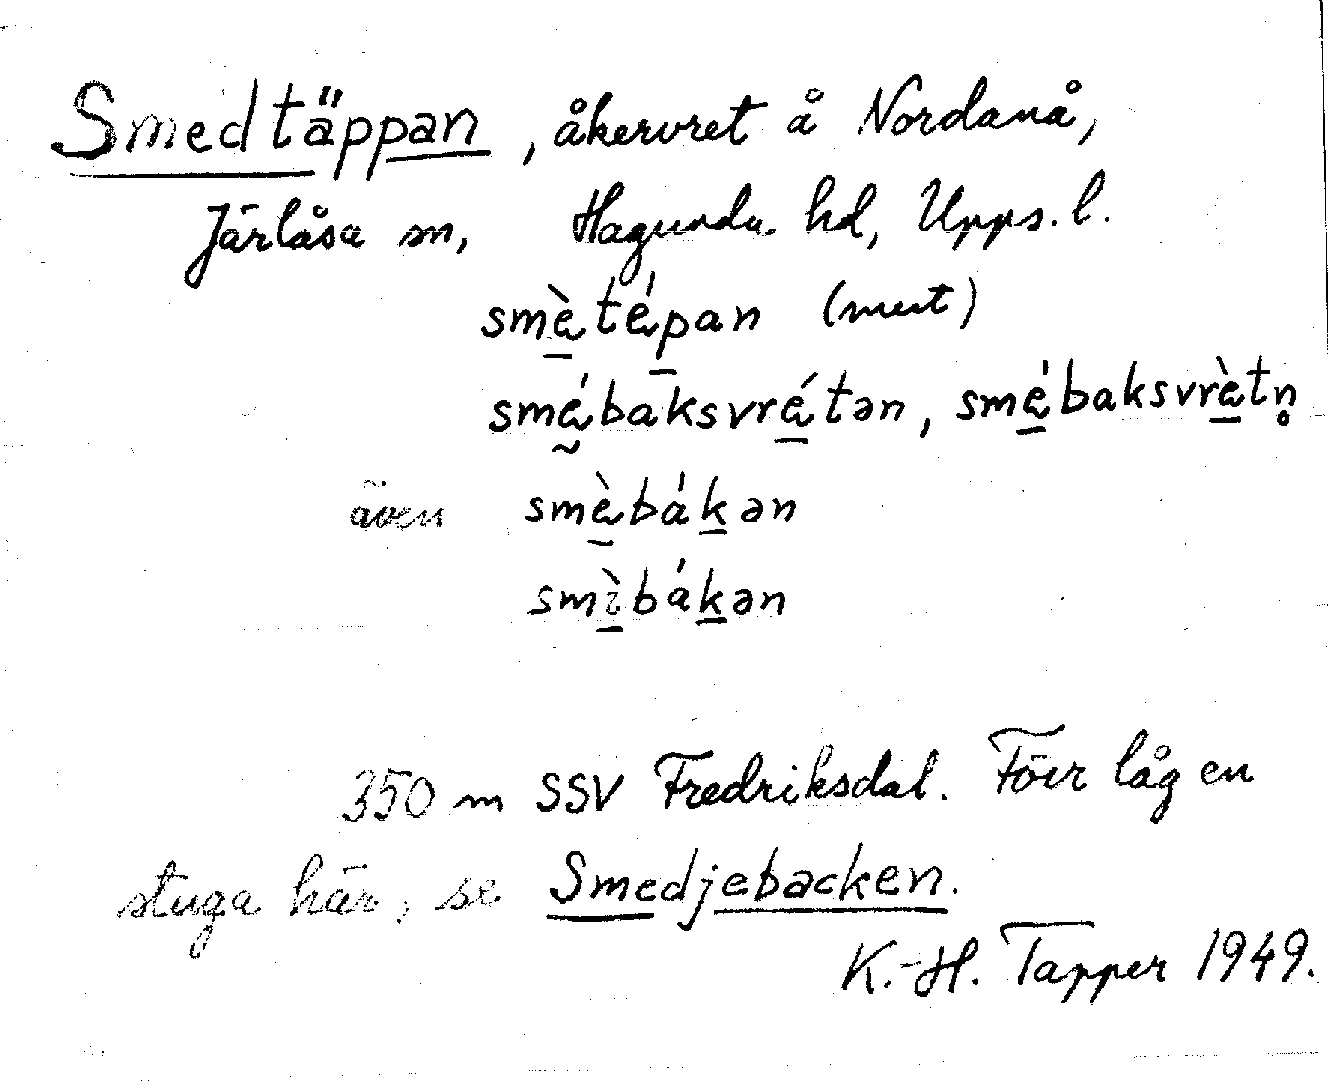 Smedtäppan, åkervret å Nordanå,
Järlåsa sn, Hagunda hd, Upps. l.
smæ̱̀tǽp̱an (mest)
smǽ̰baksvrǽ̱tən, smǽ̱baksvræ̱̀tn̥
även smæ̱̀báḵən
smì̱báḵən
350 m SSV Fredriksdal. Förr låg en
stuga här, se Smedjebacken.
K.-H. Tapper 1949.